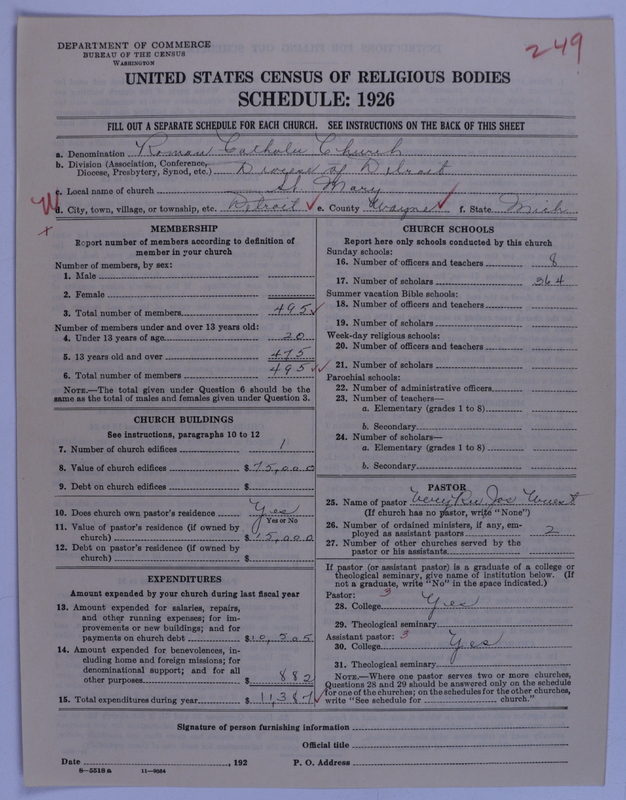 249
DEPARTMENT OF COMMERCE
BUREAU OF THE CENSUS
WASHINGTON
UNITED STATES CENSUS OF RELIGIOUS BODIES
SCHEDULE: 1926
FILL OUT A SEPARATE SCHEDULE FOR EACH CHURCH. SEE INSTRUCTIONS ON THE BACK OF THIS SHEET
a. Denomination Roman Catholic Church
b. Division (Association, Conference, Diocese, Presbytery, Synod, etc.) Diocese of Detroit
c. Local name of church St. Mary
d. City, town, village, or township, etc. Detroit e. County Wayne f. State Mich
MEMBERSHIP
Report number of members according to definition of
member in your church
Number of members, by sex:
1. Male
2. Female
3. Total number of members 495
Number of members under and over 13 years old:
4. Under 13 years of age 20
5. 13 years old and over 475
6. Total number of members 495
NOTE.—The total given under Question 6 should be the
same as the total of males and females given under Question 3.
CHURCH BUILDINGS
See instructions, paragraphs 10 to 12
7. Number of church edifices 1
8. Value of church edifices $75,000
9. Debt on church edifices $
10. Does church own pastor's residence? Yes
Yes or No
11. Value of pastor's residence (if owned by
church) $15,000
12. Debt on pastor's residence (if owned by
church) $
EXPENDITURES
Amount expended by your church during last fiscal year
13. Amount expended for salaries, repairs,
and other running expenses; for im-
provements or new buildings; and for
payments on church debt $10,505
14. Amount expended for benevolences, in-
cluding home and foreign missions; for
denominational support; and for all
other purposes $882
15. Total expenditures during year $11,387
CHURCH SCHOOLS
Report here only schools conducted by this church
Sunday schools:
16. Number of officers and teachers 8
17. Number of scholars 364
Summer vacation Bible schools:
18. Number of officers and teachers
19. Number of scholars
Week-day religious schools:
20. Number of officers and teachers
21. Number of scholars
Parochial schools:
22. Number of administrative officers
23. Number of teachers—
a. Elementary (grades 1 to 8)
b. Secondary
24. Number of scholars—
a. Elementary (grades 1 to 8)
b. Secondary
PASTOR
25. Name of pastor Very Rev Jos
(If church has no pastor, write "None")
26. Number of ordained ministers, if any, em-
ployed as assistant pastors 2
27. Number of other churches served by the
pastor or his assistants
If pastor (or assistant pastor) is a graduate of a college or
theological seminary, give name of institution below. (If
not a graduate, write "No" in the space indicated.)
Pastor: 3
28. College Yes
29. Theological seminary
Assistant pastor: 3
30. College Yes
31. Theological seminary
NOTE.—Where one pastor serves two or more churches,
Questions 28 and 29 should be answered only on the schedule
for one of the churches; on the schedules for the other churches,
write "See schedule for church."
Signature of person furnishing information
Official title
Date , 192 P. O. Address
8—5518a 11—9554